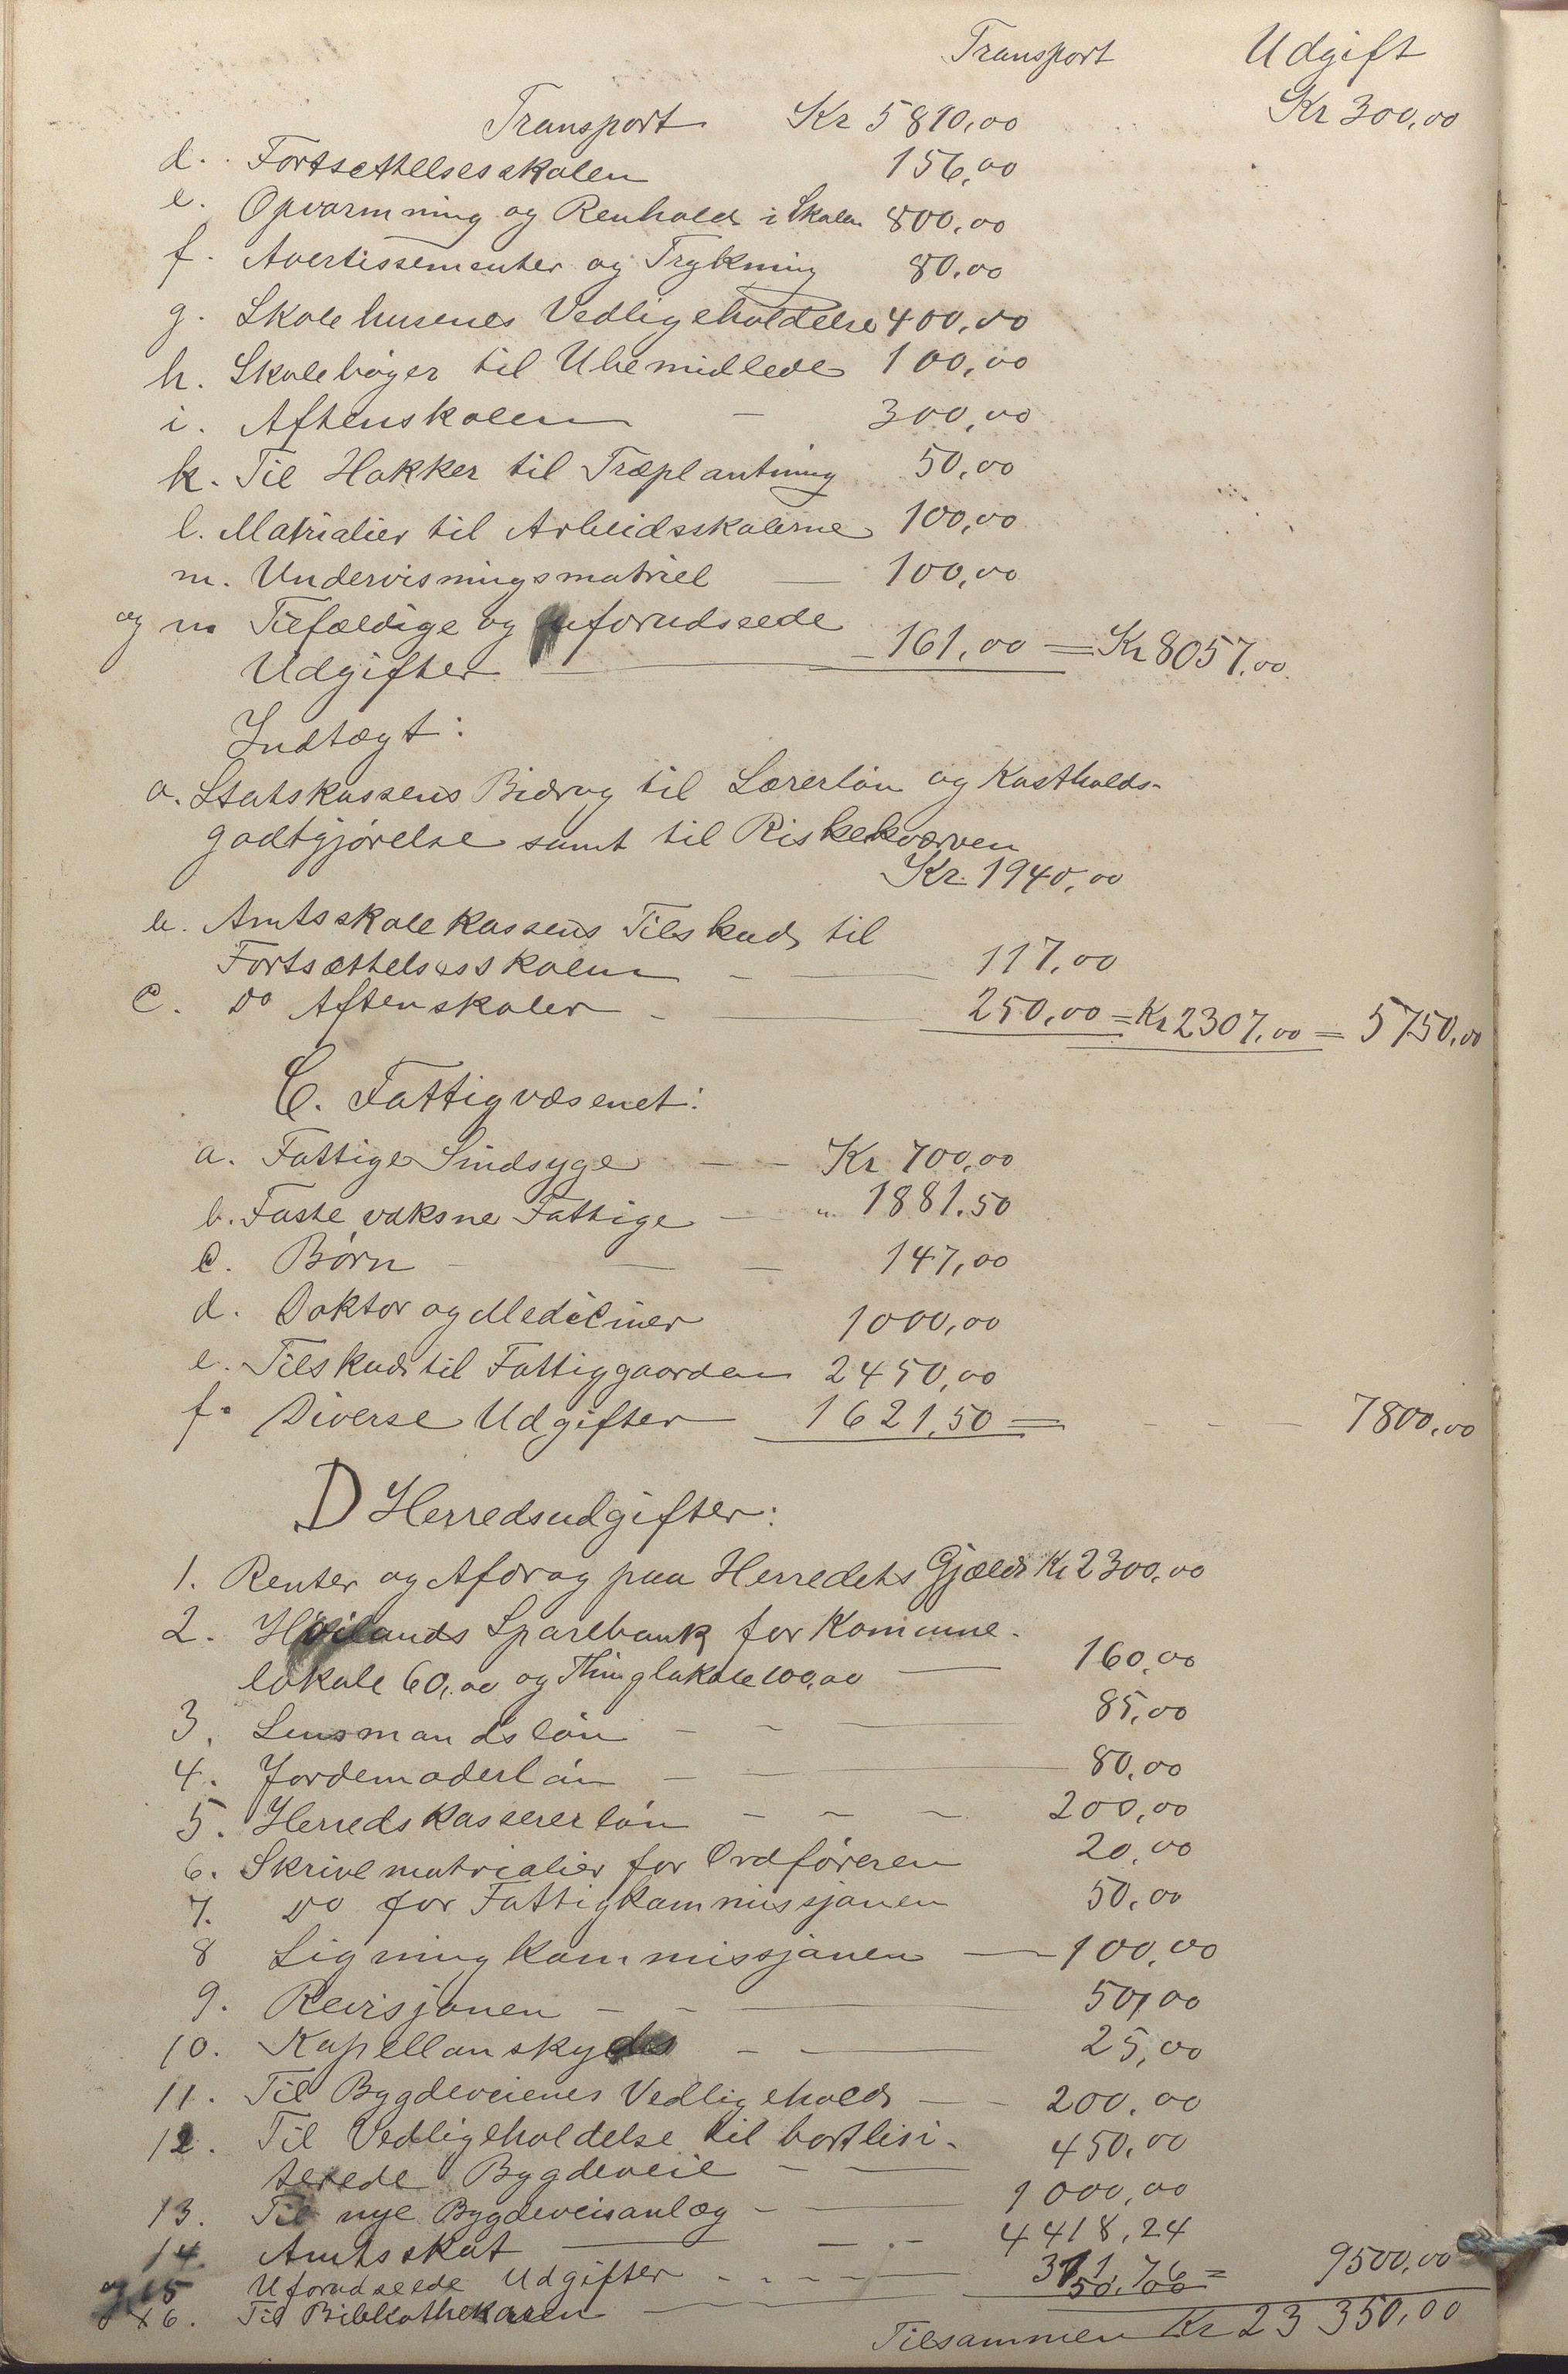 Transport Udgift
Transport Kr 5810,00 Kr 300,00
d. Fortsættelsesskolen 156,00
e. Opvarmning og Renhold i Skolen 800,00
f. Avertissementer og Trykning 80,00
g. Skolehusenes Vedligeholdelse 400,00
h. Skolebøger til Ubemidlede 100,00
i. Aftenskolen — 300,00
k. Til Hakker til Træplantning 50,00
l. Matrialier til Arbeidsskolerne 100,00
m. Undervisningsmatriel — 100,00
og n Tilfældige og uforudseede
Udgifter — 161,00 = Kr 8057,00
Indtægt:
a. Statskassens Bidrag til Lærerløn og Kostholds-
godtgjørelse samt til Riskekværven
Kr. 1940,00
b. Amtsskolekassens Tilskud til
Fortsættelsesskolen — 117,00
c. Do Aftenskoler — 250,00 = Kr 2307,00 = 5750,00
C. Fattigvæsenet:
a. Fattige Sindsyge — Kr 700,00
b. Faste voksne Fattige — " 1881.50
c. Børn — 147,00
d. Doktor og Mediciner 1000,00
e. Tilskud til Fattiggaarden 2450,00
f. Diverse Udgifter 1621,50 = — 7800,00
D Herredsudgifter:
1. Renter og Afdrag paa Herredets Gjæld Kr 2300,00
2. Høilands Sparebank for Kommune-
lokale 60,00 og Thinglokale 100,00 — 160,00
3. Lensmandsløn — 85,00
4. Jordemoderløn — 80,00
5. Herredskassererløn — 200,00
6. Skrivematrialier for Ordføreren 20,00
7. Do for Fattigkommissjonen 50,00
8 Ligningkommissjonen — 100,00
9. Revisjonen — 50,00
10. Kapellanskyds — 25,00
11. Til Bygdeveienes Vedligehold — 200,00
12. Til Vedligeholdelse til bortlisi-
terede Bygdeveie — 450,00
13. Til nye Bygdeveisanlæg — 1000,00
14. Amtsskat — 4418,24
og 15 Uforudseede Udgifter — 311,76 = 9500,00
16. Til Bibliothekaren — 50,00
Tilsammen Kr 23 350,00